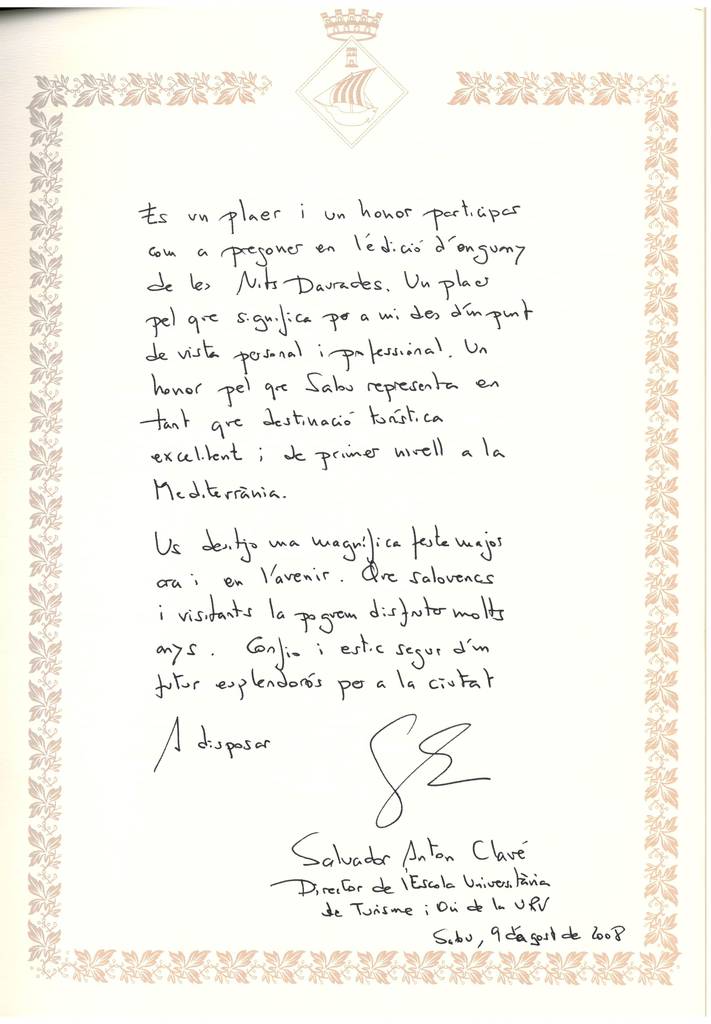 És un plaer i un honor participar
com a pregoner en l'edició d'enguany
de les Nits Daurades. Un plaer
pel que significa per a mi des d'un punt
de vista personal i professional. Un
honor pel que Salou representa en
tant que destinació turística
excel.lent i de primer nivell a la
Mediterrània.
Us desitjo una magnífica festa major
ara i en l'avenir. Que salouencs
i visitants la poguem disfrutar molts
anys. Confio i estic segur d'un
futur esplendorós per a la ciutat
A disposar
Salvador Anton Clavé
Director de l'Escola Universitària
de Turisme i Oci de la URV
Salou, 9 d'agost de 2008